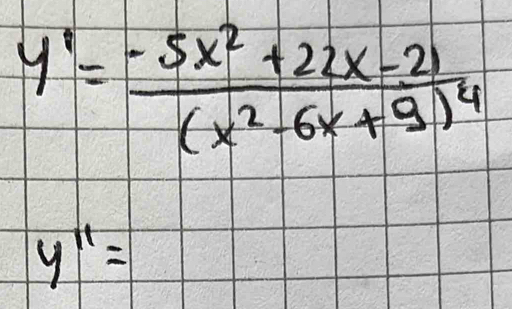 y' = (-5x² + 22x - 21) / (x² - 6x + 9)⁴
y'' =